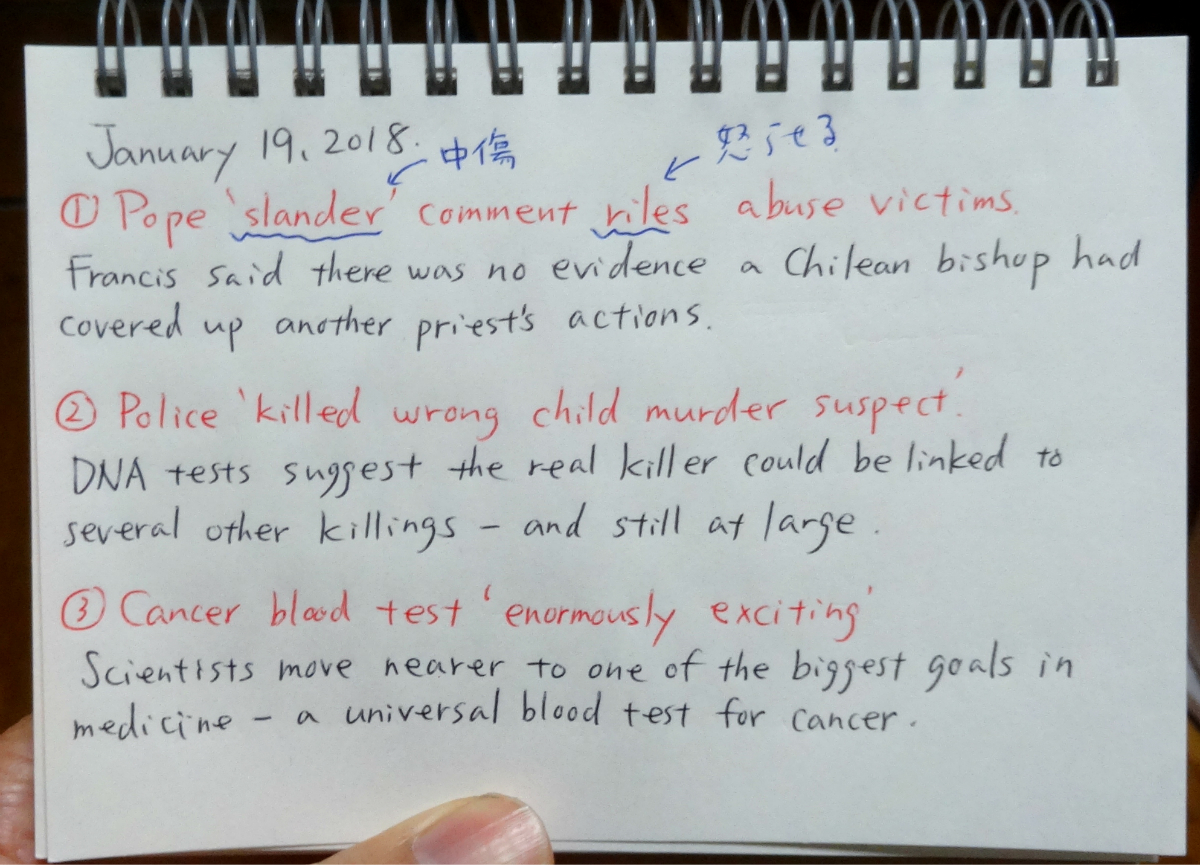 January 19, 2018.
中傷
怒らせる
① Pope 'slander' comment riles abuse victims.
Francis said there was no evidence a Chilean bishop had
covered up another priest's actions.
② Police 'killed wrong child murder suspect'.
DNA tests suggest the real killer could be linked to
several other killings - and still at large.
③ Cancer blood test 'enormously exciting'
Scientists move nearer to one of the biggest goals in
medicine - a universal blood test for cancer.